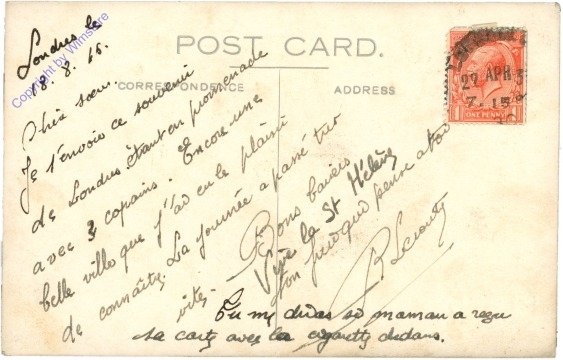 POST CARD.
CORRESPONDENCE
ADDRESS
Copyright by Wimsfare
22 APR 3
7. 15
1 ONE PENNY 1
Londres le
18. 8. 16.
Chère sœur.
Je t'envoie ce souvenir
de Londres étant en promenade
avec 3 copains. Encore une
belle ville que j'ai eu le plaisir
de connaître. La journée a passé très
vite.
Bons baisers
Vive la St Hélène
ton frère qui pense à toi
Tu me diras si maman a reçu
sa carte avec la cigarette dedans.